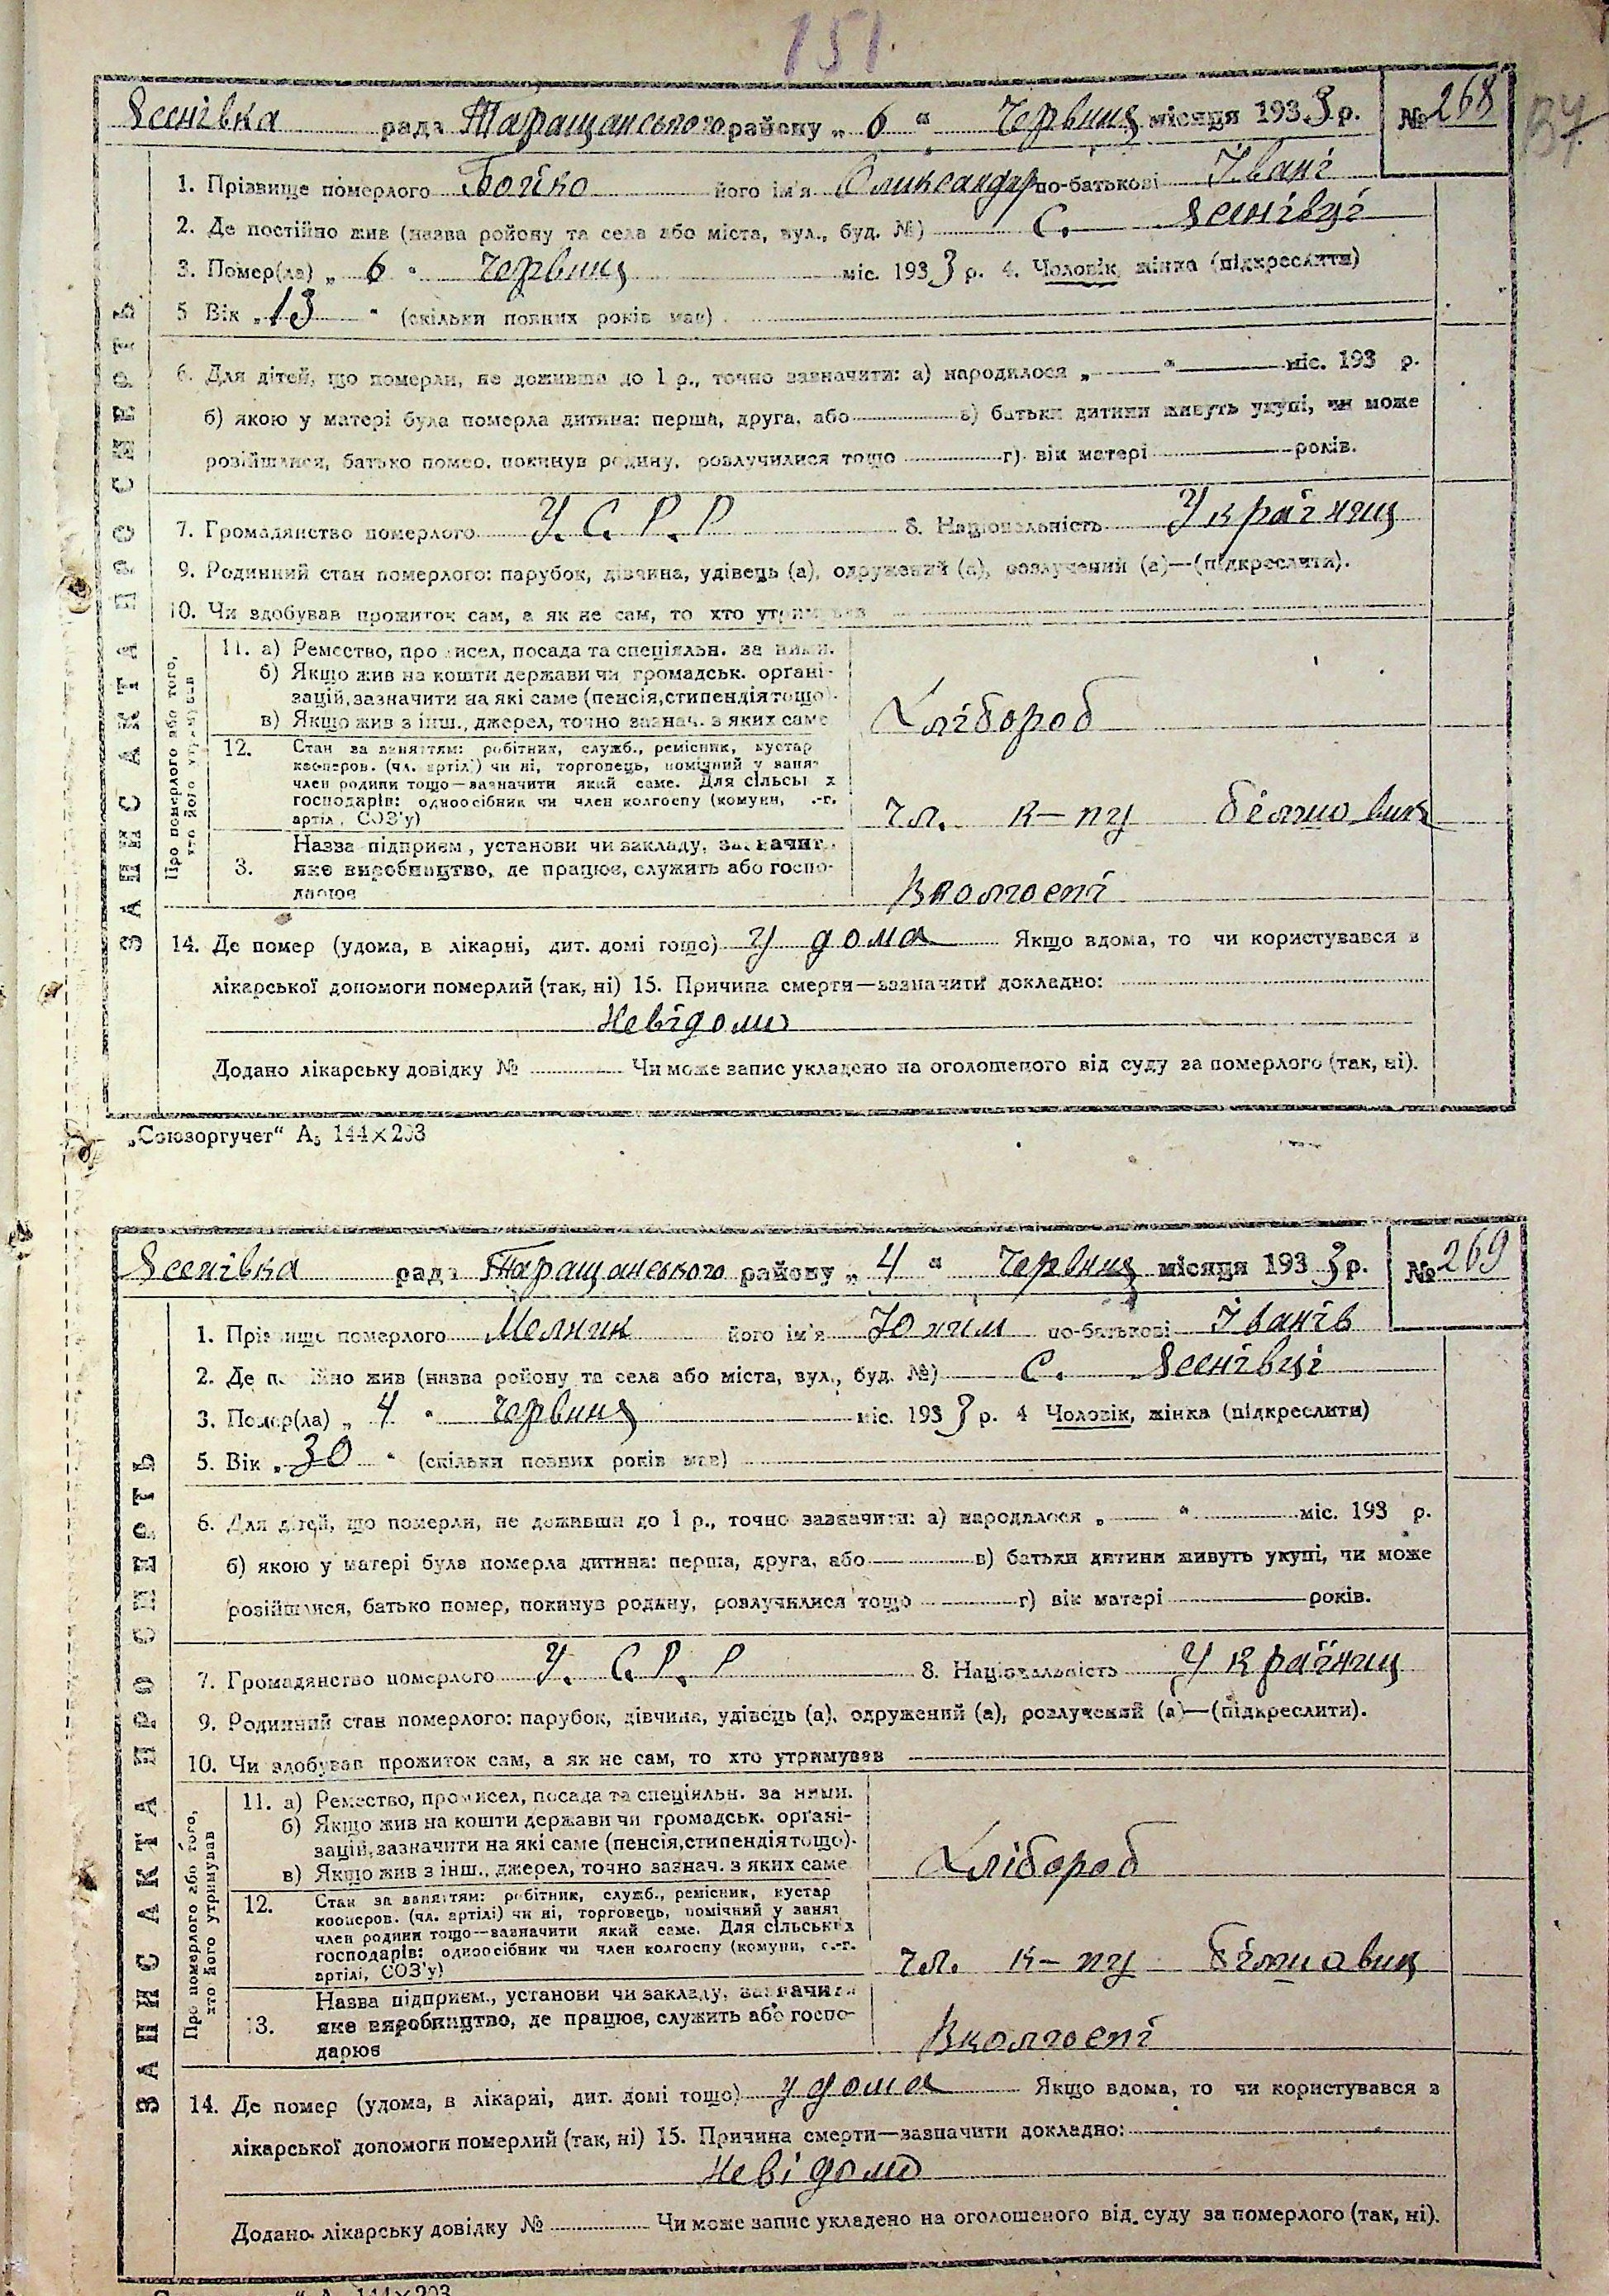 151.
Лесівка рада Таращанського району „ 6 “ Червня місяця 1933 р. № 268
1. Прізвище померлого Бойко його ім'я Олександр по-батькові Івані
2. Де постійно жив (назва району та села або міста, вул., буд. №) С.
3. Помер(ла) „ 6 “ Червня міс. 1933 р. 4. Чоловік, жінка (підкреслити)
5 Вік „ 13 “ (скільки повних років мав)
6. Для дітей, що померли, не доживши до 1 р., точно зазначити: а) народилося „ “ міс. 193 р.
б) якою у матері була померла дитина: перша, друга, або в) батьки дитини живуть укупі, чи може
розійшлися, батько помер, покинув родину, розлучилися тощо г) вік матері років.
7. Громадянство померлого У. С. Р. Р 8. Національність Україниц
9. Родинний стан померлого: парубок, дівчина, удівець (а), одружений (а), розлучений (а)—(підкреслити).
10. Чи здобував прожиток сам, а як не сам, то хто утримував
ЗАПИС АКТА ПРО СМЕРТЬ
Про померлого або того, хто його утримував
11. а) Ремество, промисел, посада та спеціяльн. за ними.
б) Якщо жив на кошти держави чи громадськ. органі-
зацій, зазначити на які саме (пенсія, стипендія тощо).
в) Якщо жив з інш., джерел, точно зазнач. з яких саме
Хлібороб
12. Стан за заняттям: робітник, служб., ремісник, кустар
кооперов. (чл. артілі) чи ні, торговець, помічний у занят
член родини тощо—зазначити який саме. Для сільських
господарів: одноосібник чи член колгоспу (комуни, с.-г.
артілі, СОЗ'у)
чл. к–пу більшовик
3. Назва підприєм., установи чи закладу, зазначити
яке виробництво, де працює, служить або госпо-
дарює
Вколгоспі
14. Де помер (удома, в лікарні, дит. домі тощо) у дома Якщо вдома, то чи користувався з
лікарської допомоги померлий (так, ні) 15. Причина смерти—зазначити докладно:
Невідомо
Додано лікарську довідку № Чи може запис укладено на оголошеного від суду за померлого (так, ні).
„Союзоргучет“ А5 144×203
рада Таращанського району „ 4 “ Червня місяця 1933 р. № 269
1. Прізвище померлого Мелник його ім'я Юхим по-батькові Іванів
2. Де постійно жив (назва району та села або міста, вул., буд. №) С.
3. Помер(ла) „ 4 “ Червня міс. 1933 р. 4 Чоловік, жінка (підкреслити)
5. Вік „ 30 “ (скільки повних років мав)
6. Для дітей, що померли, не доживши до 1 р., точно зазначити: а) народилося „ “ міс. 193 р.
б) якою у матері була померла дитина: перша, друга, або в) батьки дитини живуть укупі, чи може
розійшлися, батько помер, покинув родину, розлучилися тощо г) вік матері років.
7. Громадянство померлого У. С. Р. Р 8. Національність Україниц
9. Родинний стан померлого: парубок, дівчина, удівець (а), одружений (а), розлучений (а)—(підкреслити).
10. Чи здобував прожиток сам, а як не сам, то хто утримував
ЗАПИС АКТА ПРО СМЕРТЬ
Про померлого або того, хто його утримував
11. а) Ремество, промисел, посада та спеціяльн. за ними.
б) Якщо жив на кошти держави чи громадськ. органі-
зацій, зазначити на які саме (пенсія, стипендія тощо).
в) Якщо жив з інш., джерел, точно зазнач. з яких саме
Хлібороб
12. Стан за заняттям: робітник, служб., ремісник, кустар
кооперов. (чл. артілі) чи ні, торговець, помічний у занят
член родини тощо—зазначити який саме. Для сільських
господарів: одноосібник чи член колгоспу (комуни, с.-г.
артілі, СОЗ'у)
чл. к–пу більшовик
13. Назва підприєм., установи чи закладу, зазначити
яке виробництво, де працює, служить або госпо-
дарює
Вколгоспі
14. Де помер (удома, в лікарні, дит. домі тощо) удома Якщо вдома, то чи користувався з
лікарської допомоги померлий (так, ні) 15. Причина смерти—зазначити докладно:
Невідомо
Додано лікарську довідку № Чи може запис укладено на оголошеного від суду за померлого (так, ні).
“ А 144×203